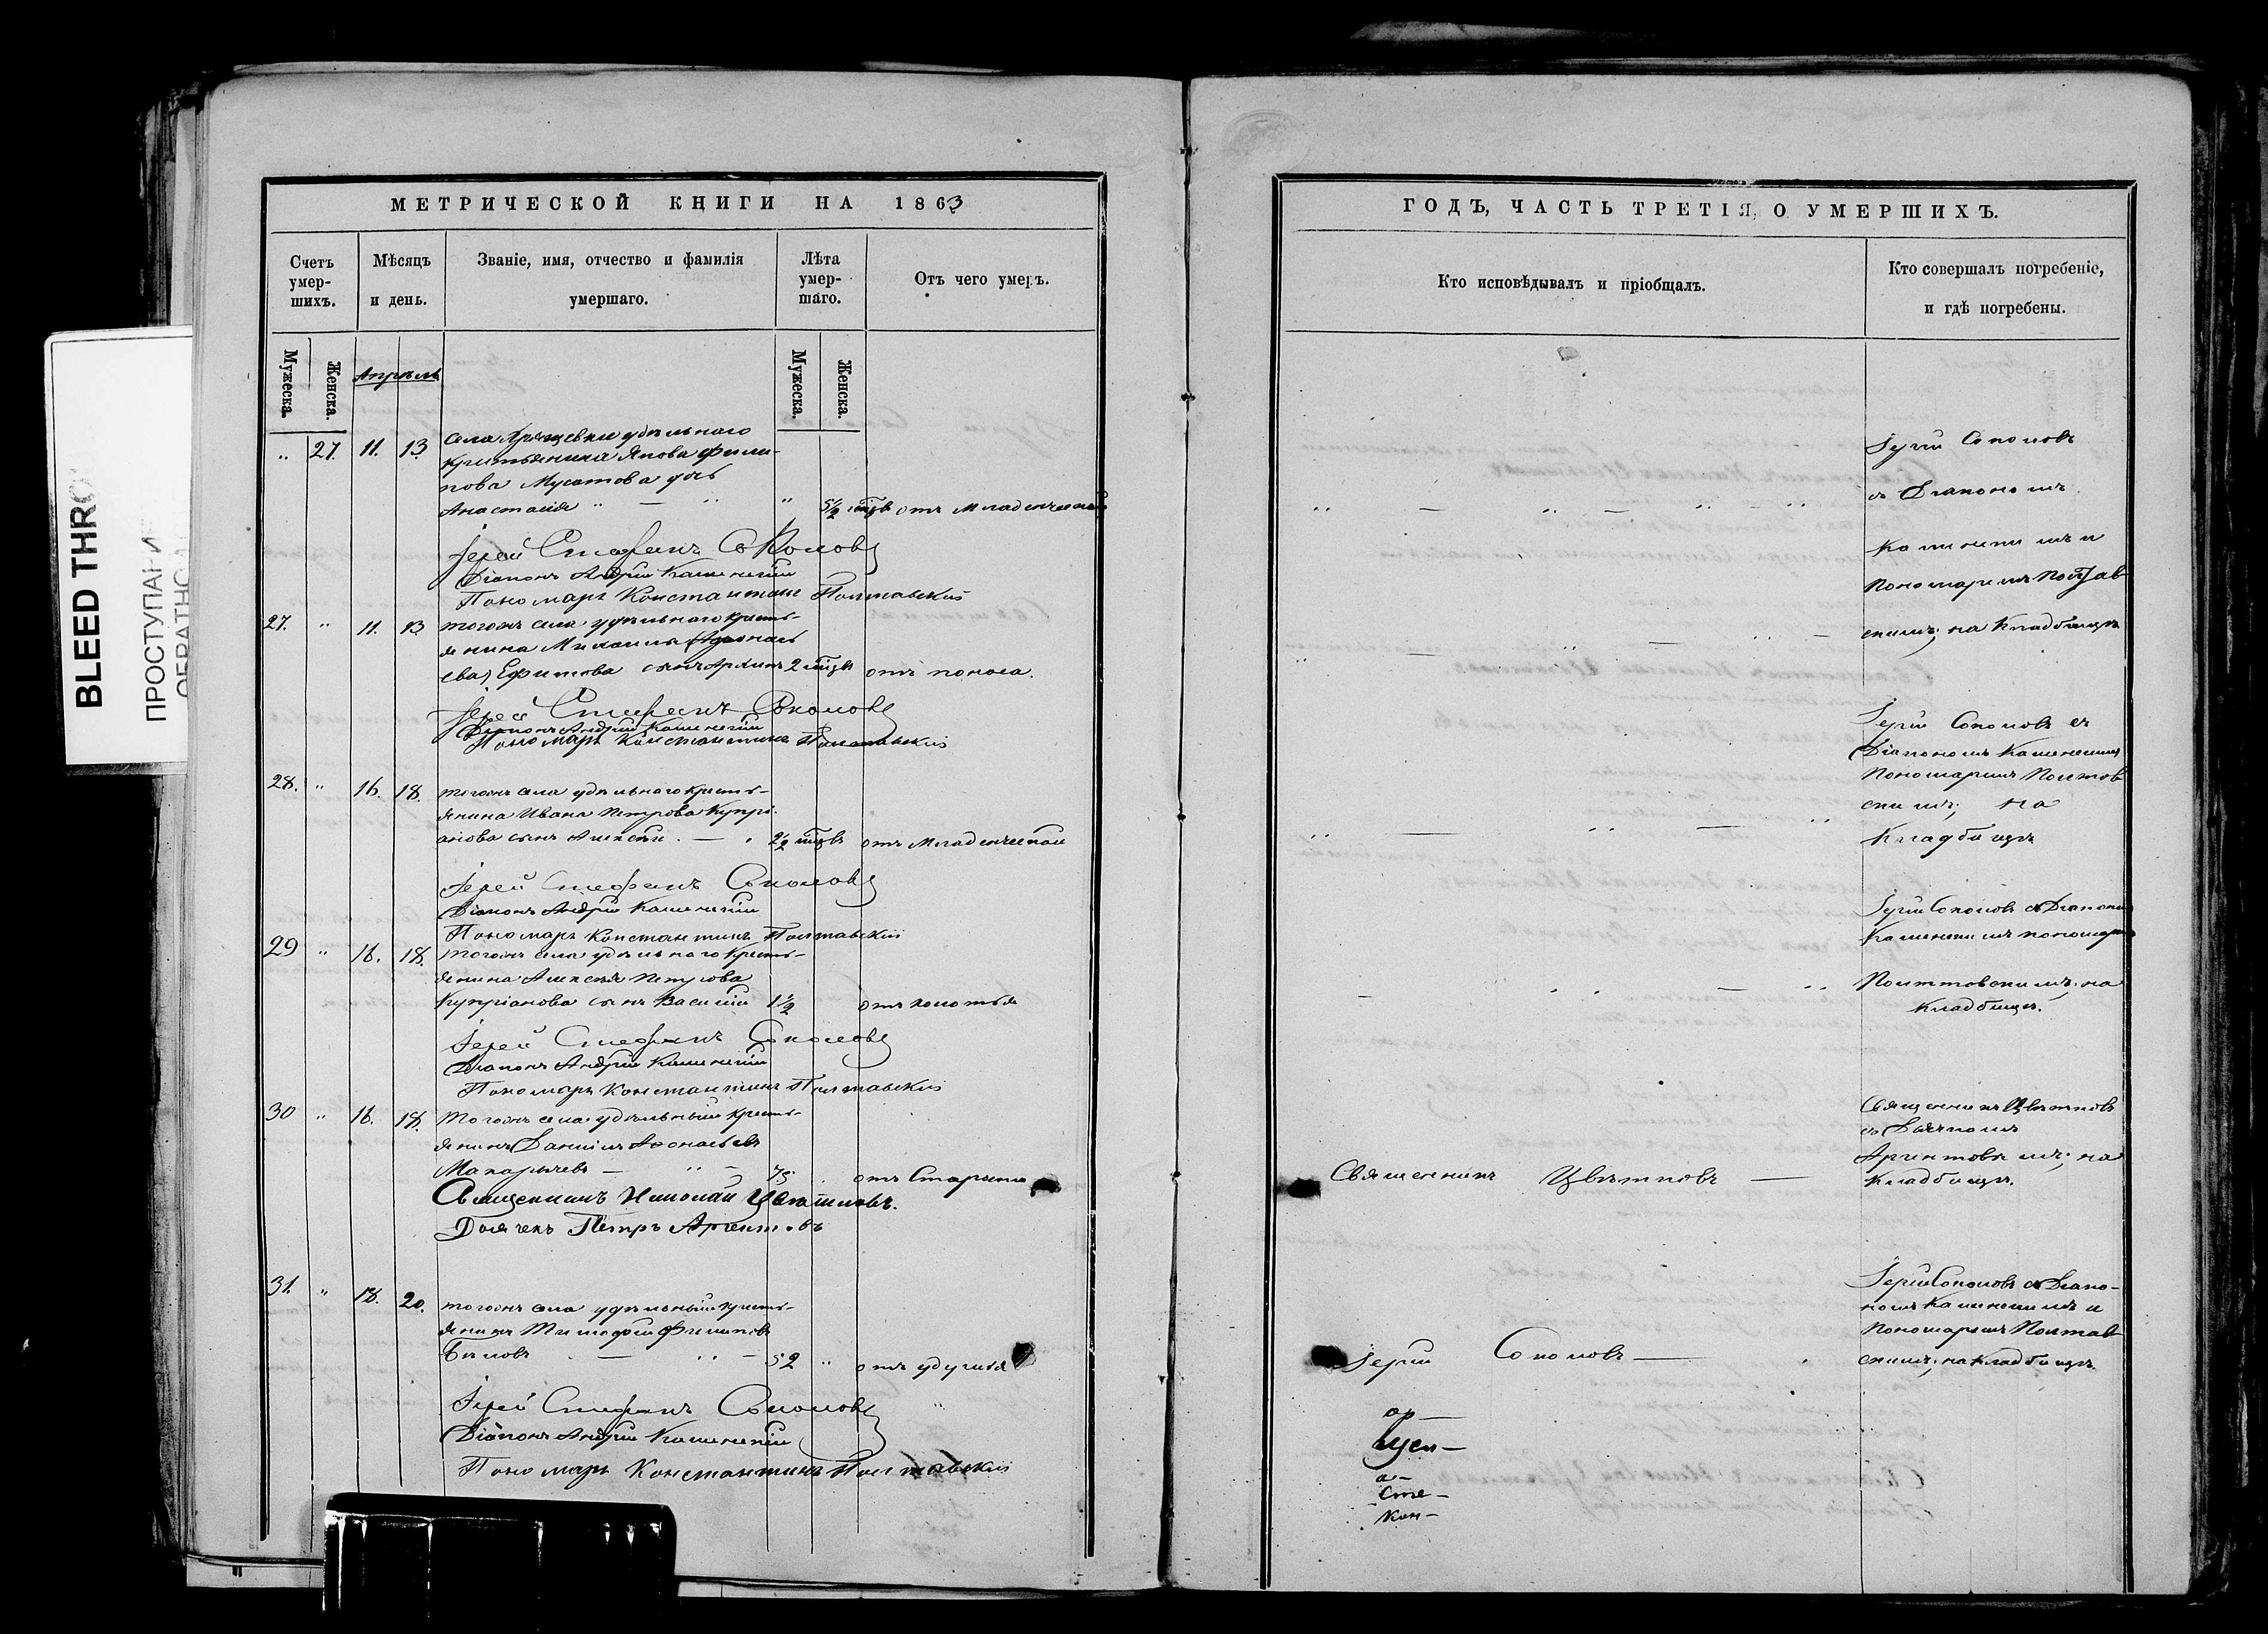 BLEED THRO
ПРОСТУПАНИ
ОБРАТНО
МЕТРИЧЕСКОЙ КНИГИ НА 1863
Счетъ умер-шихъ.
Мѣсяцъ и день.
Званіе, имя, отчество и фамилія умершаго.
Лѣта умер-шаго.
Отъ чего умеръ.
Мужеска.
Женска.
Апрѣль
Мужеска.
Женска.
" 27. 11. 13 села удѣльнаго
крестьянина Якова Фили-
пова Мусатова дочь
Анастасія " — " " 5½ мѣсц отъ младенческой
Іерей Стефанъ Соколовъ
Діаконъ Андрей Каменскій
Пономарь Константинъ Полтавскій
27. " 11. 13 тогожъ села удѣльнаго кресть-
янина Михаила Афонась
ева Ефимова сынъ 2 мѣсц отъ поноса.
Іерей Стефанъ Соколовъ
Діаконъ Андрей Каменскій
Пономарь Константинъ Полтавскій
28. " 16. 18. тогожъ села удѣльнаго кресть-
янина Ивана Петрова Купрі-
анова сынъ Алексѣй. — " 2½ мѣсц отъ младенческой
Іерей Стефанъ Соколовъ
Діаконъ Андрей Каменскій
Пономарь Константинъ Полтавскій
29 " 16. 18. тогожъ села удѣльнаго кресть-
янина Алексѣя Петрова
Купріанова сынъ Василій 1½ отъ колотья
Іерей Стефанъ Соколовъ
Діаконъ Андрей Каменскій
Пономарь Константинъ Полтавскій
30 " 16. 18. тогожъ села удѣльный кресть-
янинъ Даніилъ Афонасьевъ
Макарычевъ — " — 75. отъ старости
Священникъ Николай Цвѣтковъ.
Дьячекъ Петръ Аргентовъ
31. " 18. 20. тогожъ села удѣльный кресть-
янинъ Тимофей Филиповъ
Бѣловъ — " — 52 " отъ удушья
Іерей Стефанъ Соколовъ
Діаконъ Андрей Каменскій
Пономарь Константинъ Полтавскій
ГОДЪ, ЧАСТЬ ТРЕТІЯ, О УМЕРШИХЪ.
Кто исповѣдывалъ и пріобщалъ.
Кто совершалъ погребеніе, и гдѣ погребены.
Іерей Соколовъ
съ Діакономъ
Каменскимъ и
Пономаремъ Полтав-
скимъ; на кладбищѣ
Іерей Соколовъ съ
Діакономъ Каменскимъ
Пономаремъ Полтав
скимъ; на
кладбищѣ
Іерей Соколовъ съ Діакономъ
Каменскимъ пономаремъ
Полтавскимъ; на
кладбищѣ.
Священникъ Цвѣтковъ —
Священникъ Цвѣтковъ
съ Дьячкомъ
Аргентовымъ; на
кладбищѣ.
Іерей Соколовъ —
Іерей Соколовъ съ Діако-
номъ Каменскимъ и
Пономаремъ Полтав-
скимъ; на кладбищѣ.
ор—
а—
Сте—
Кон—